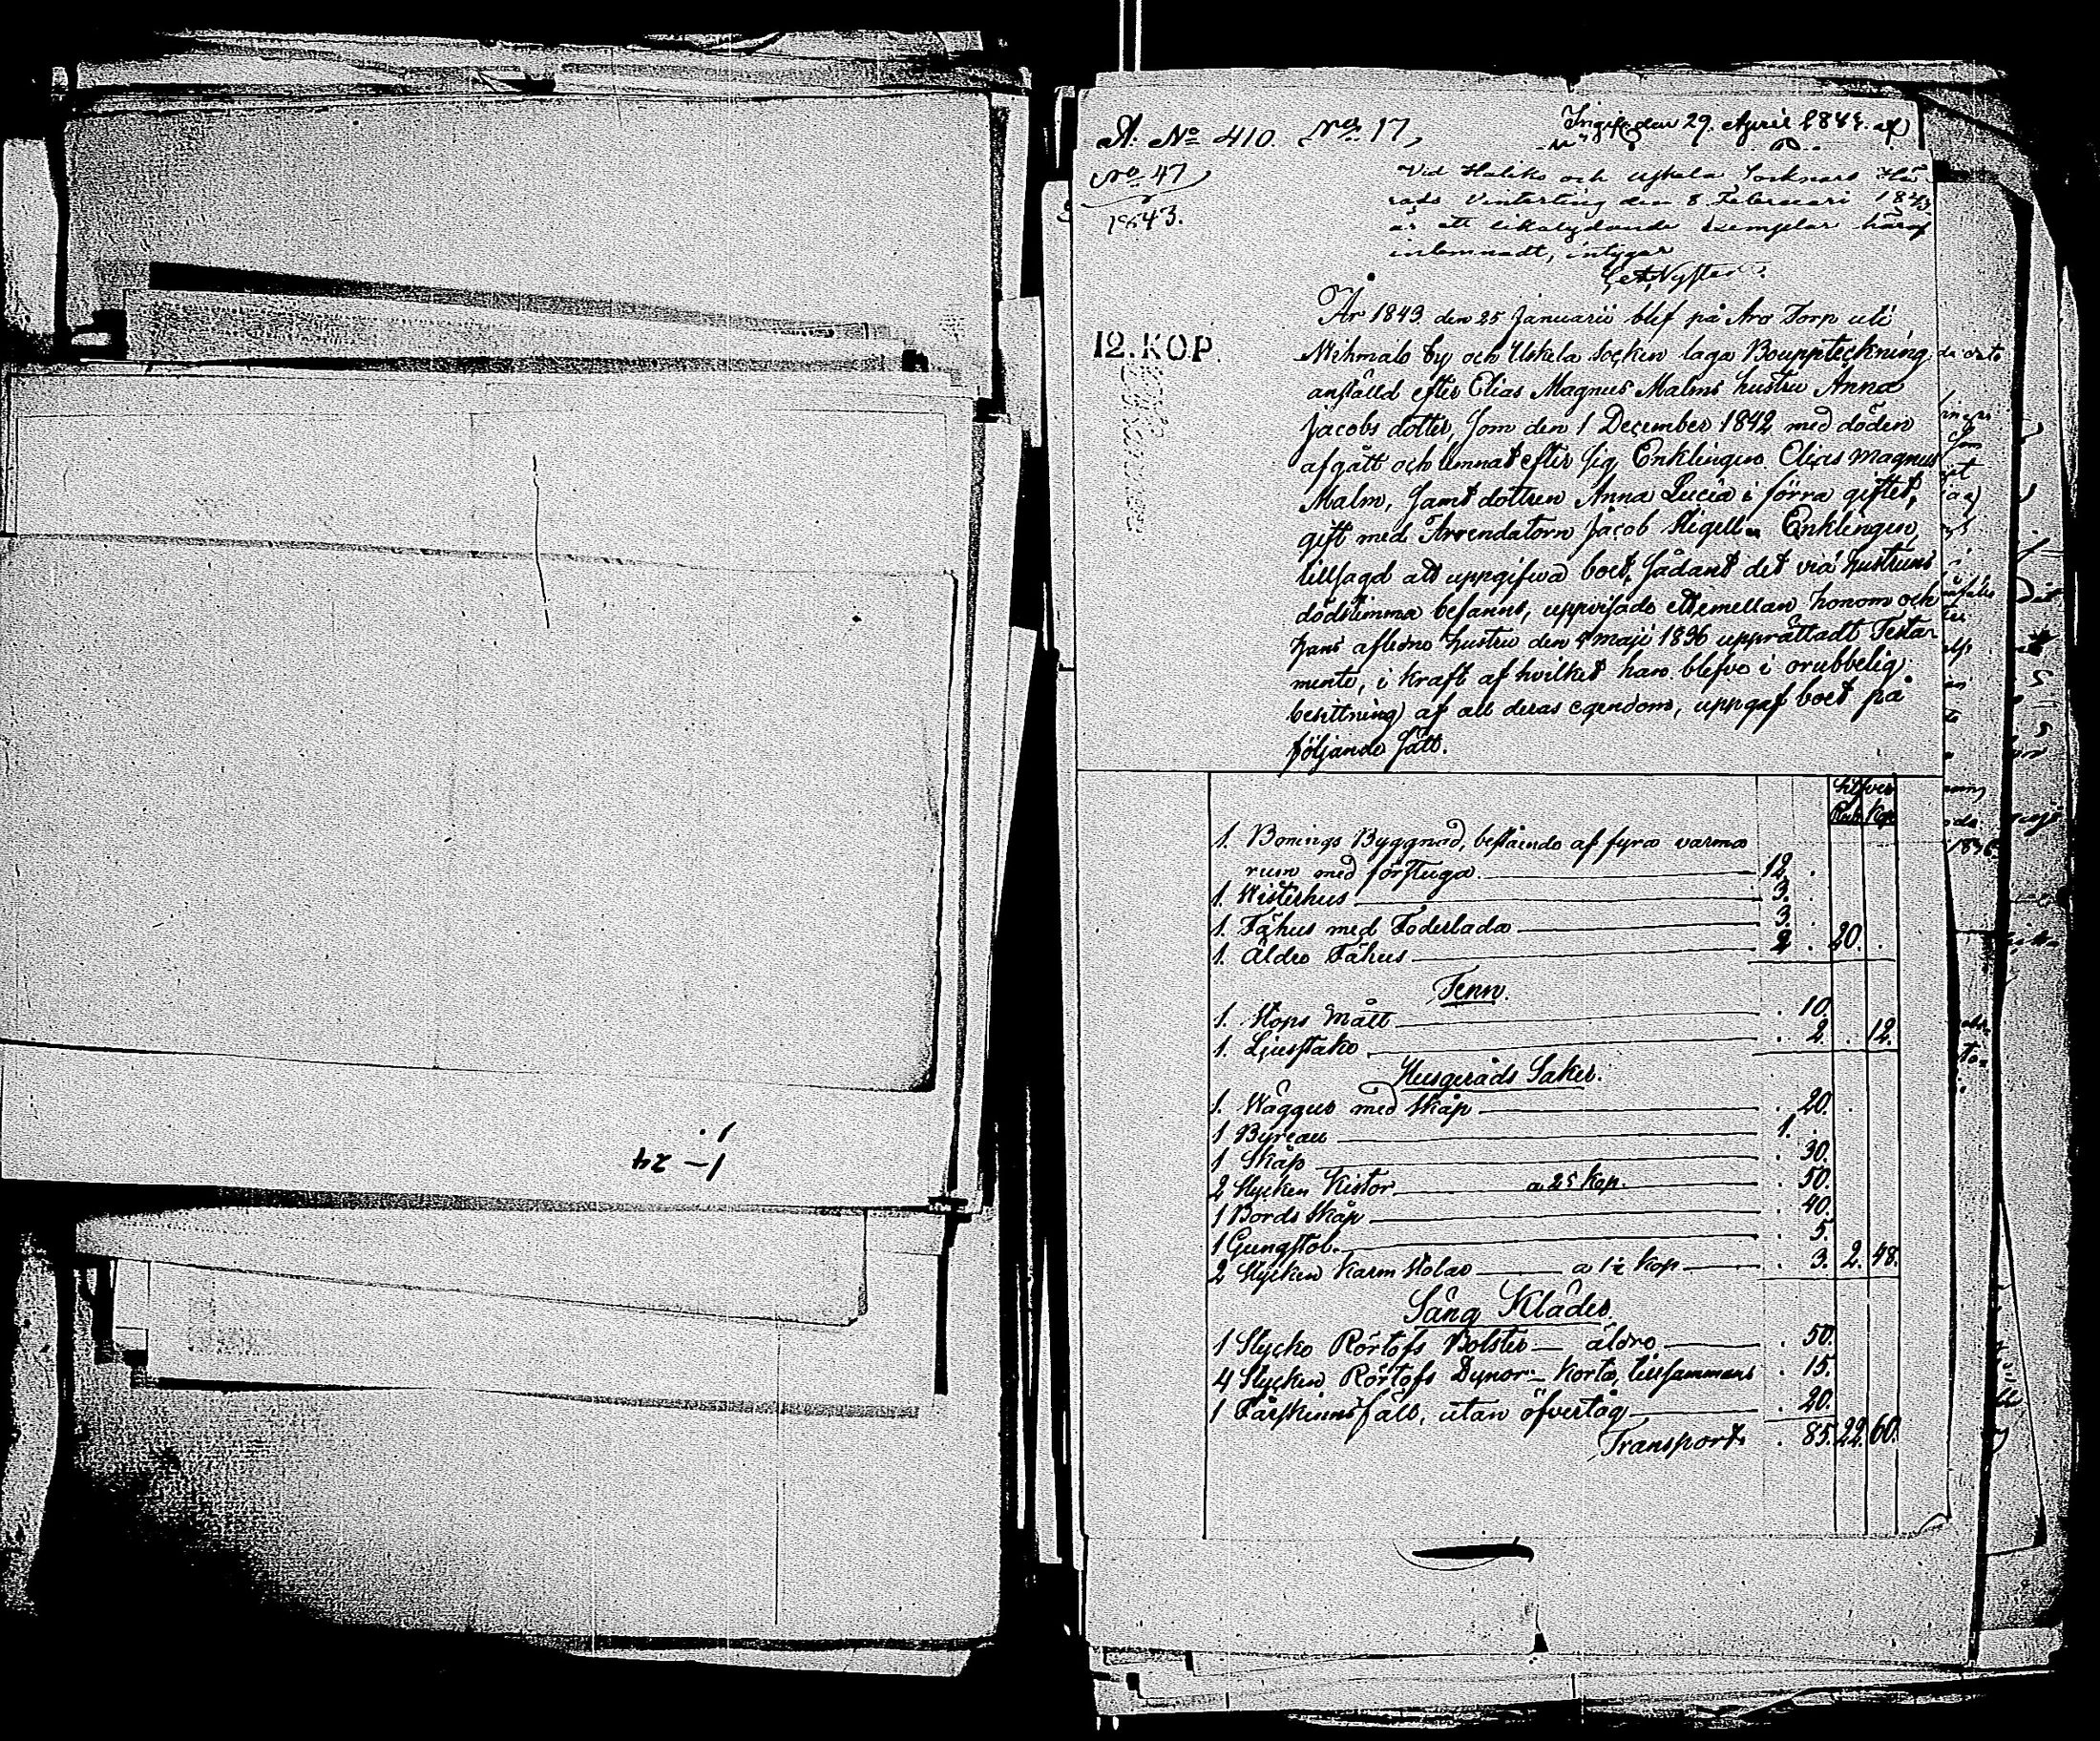 A. No 410. No 17,
Ingif. den 29. April 1844. af
No 47
1843.
Vid Haliko och Uskela Socknars Hä-
rads Vinterting den 8 Februari 1843
är ett likalydande Exemplar häraf
inlemnadt, intygar
12. KOP.
År 1843 den 25 Januarii blef på Aro Torp uti
Mihmalo by och Uskela Socken laga Bouppteckning
anställd efter Elias Magnus Malms hustru Anna
Jacobs dotter, som den 1 December 1842 med döden
afgått och lemnat efter sig Enklingen Elias Magnus
Malm, samt dottren Anna Lucia i förra giftet,
gift med Arrendatorn Jacob Enklingen,
tillsagd att uppgifwa boet, sådant det vid hustruns
dödstimma befanns, uppvisade ett emellan honom och
hans aflidne hustru den 4 Maji 1836 upprättadt Testa-
mente, i kraft af hvilket han blefve i orubbelig
besittning af all deras egendom, uppgaf boet på
följande sätt.
Silfver
Rub. Kop.
1. Bonings Byggnad, bestående af fyra varma
rum med förstuga 12.
1. Wisthus 3.
1. Fähus med Foderlada 3.
1. Äldre Fähus 2. 20.
Tenn.
1. Stops Mått 10.
1. Ljusstake 2. 12.
Husgeråds Saker.
1. Wäggur med Skåp 20.
1 Byreau 1.
1 Skåp 30.
2 Stycken Kistor a 25 Kop. 50.
1 Bords Skåp 40.
1 Gungstol 5.
2 Stycken Karm Stolar a 1½ Kop 3. 2. 48.
Säng Kläder
1 Stycke Rörtofs Bolster äldre 50.
4 Stycken Rörtofs Dynor korta, tillsammans 15.
1 Fårskinnsfäll, utan öfvertåg 20.
Transport 85. 22. 60.
1.
1–24